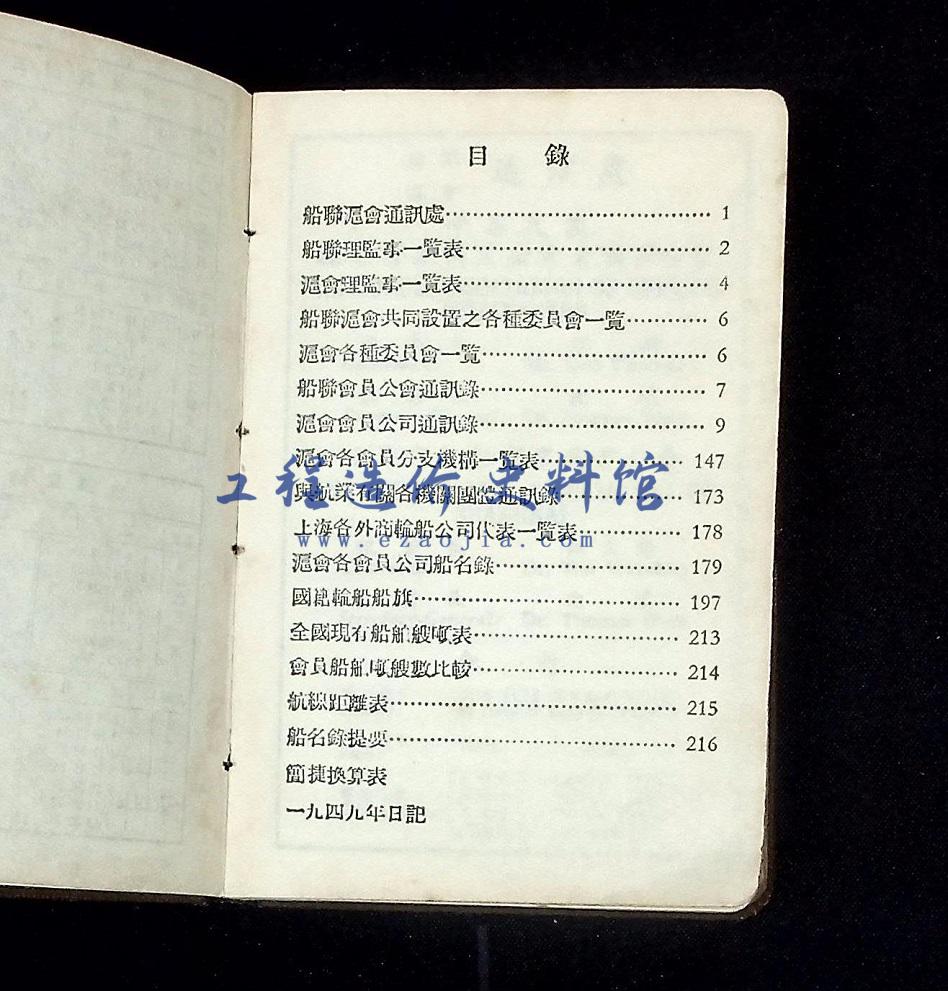 目 錄
船聯滬會通訊處 1
船聯理監事一覧表 2
滬會理監事一覧表 4
船聯滬會共同設置之各種委員會一覧 6
滬會各種委員會一覧 6
船聯會員公會通訊錄 7
滬會會員公司通訊錄 9
滬會各會員分支機構一覧表 147
工程造价史料馆
與航業有關各機關團體通訊錄 173
上海各外商輪船公司代表一覧表 178
www.ezaojia.com
滬會各會員公司船名錄 179
國籍輪船船旗 197
全國現有船舶艘噸表 213
會員船舶噸艘數比較 214
航線距離表 215
船名錄提要 216
簡捷換算表
一九四九年日記